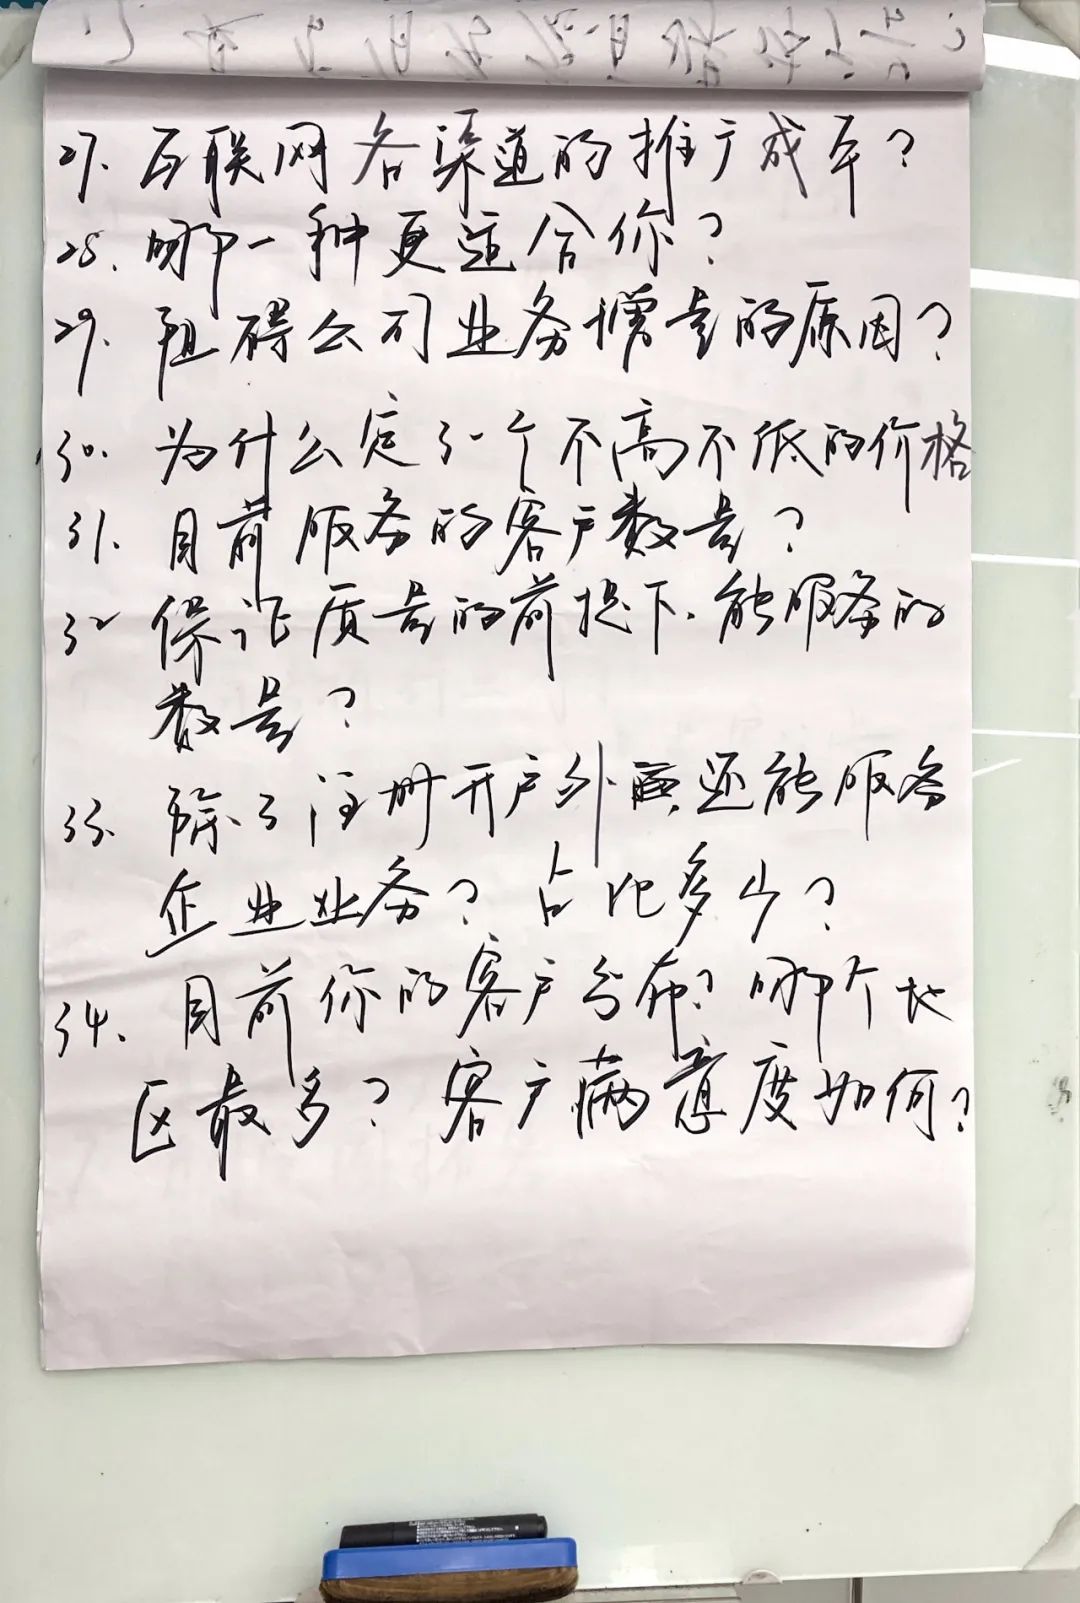 27. 互联网各渠道的推广成本？
28. 哪一种更适合你？
29. 阻碍公司业务增量的原因？
30. 为什么定了一个不高不低的价格
31. 目前服务的客户数量？
32 保证质量的前提下、能服务的
数量？
33. 除了注册开户外还能服务
企业业务？占比多少？
34. 目前你的客户分布？哪个地
区最多？客户满意度如何？